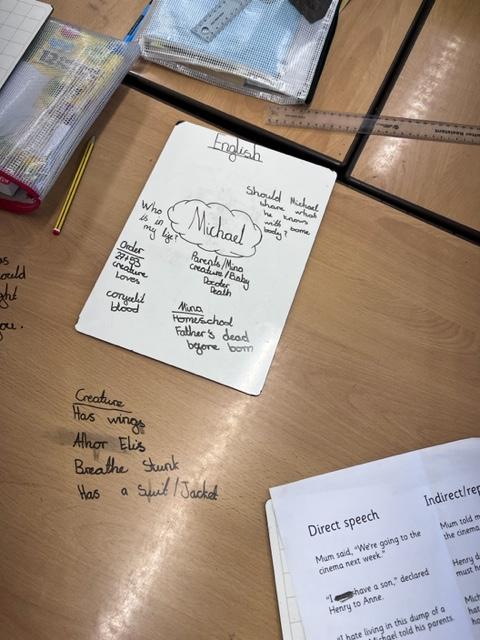 English
Should Michael
share what
he knows
with some
body?
Who
is in
my life?
Michael
Order
27+53
creature
Loves
blood
Parents/Mina
creature/Baby
Docter
Death
Mina
Homeschool
Father's dead
before born
Creature
Has wings
Athor Elis
Breathe Stunk
Has a Suit/Jacket
ould
ght
you.
Direct speech
Mum said, "We're going to the
cinema next week."
"I have a son," declared
Henry to Anne.
"I hate living in this dump of a
Michael told his parents.
Indirect/rep
Mum told m
the cinema
Henry d
must h
Mich
hat
ha